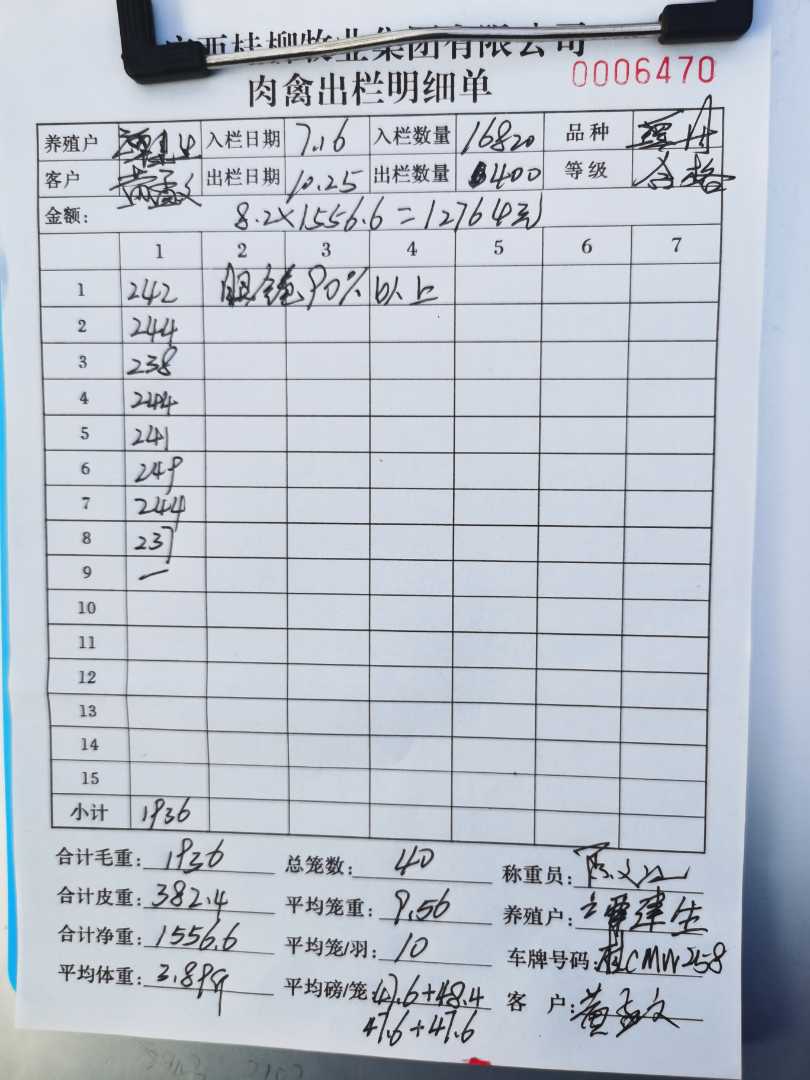 广西桂柳牧业集团有限公司
肉禽出栏明细单 0006470
养殖户 入栏日期 7.16 入栏数量 16820 品种
客户 黄孟文 出栏日期 10.25 出栏数量 400 等级 合格
金额: 8.2×1556.6=12764元
1 2 3 4 5 6 7
1 242 眼 90% 以上
2 244
3 238
4 244
5 241
6 249
7 244
8 237
9 —
10
11
12
13
14
15
小计 1936
合计毛重: 1936 总笼数: 40 称重员:
合计皮重: 382.4 平均笼重: 9.56 养殖户: 建生
合计净重: 1556.6 平均笼/羽: 10 车牌号码: 桂CMW258
平均体重: 3.899 平均磅/笼: 47.6+48.4 客 户: 黄孟文
47.6+47.6